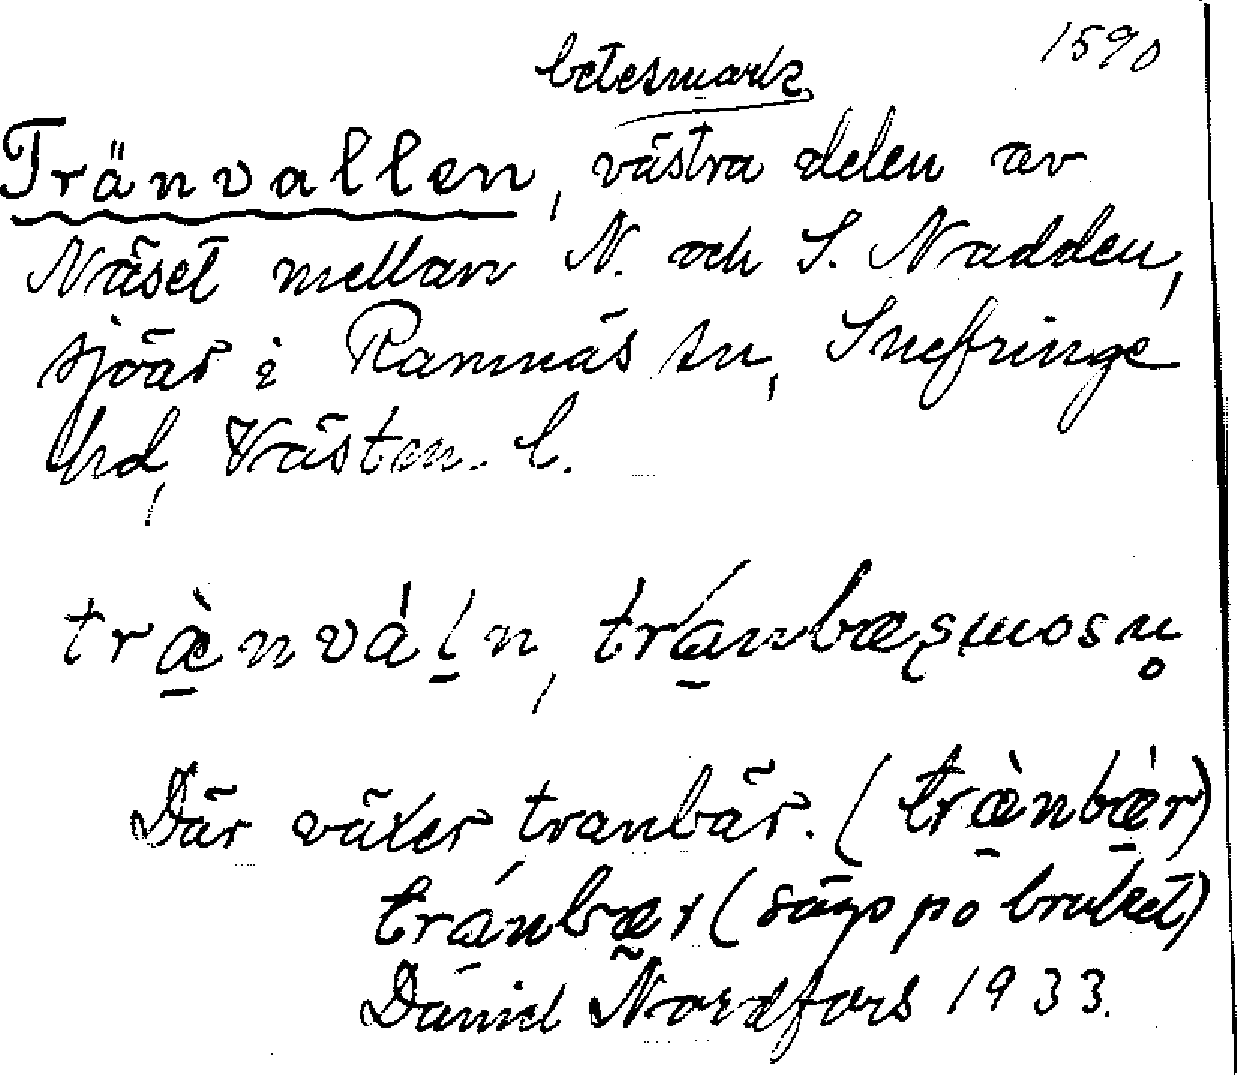 1590
betesmark
Tränvallen, västra delen av
Näset mellan N. och S. Nadden,
sjöar i Ramnäs sn, Snefringe
hd, Västm. l.
træ̀nvál̠n, tránbæʂmosn̥
Där växer tranbär. (træ̀nbǽr)
tránbær (säjs på bruket)
Daniel Nordfors 1933.